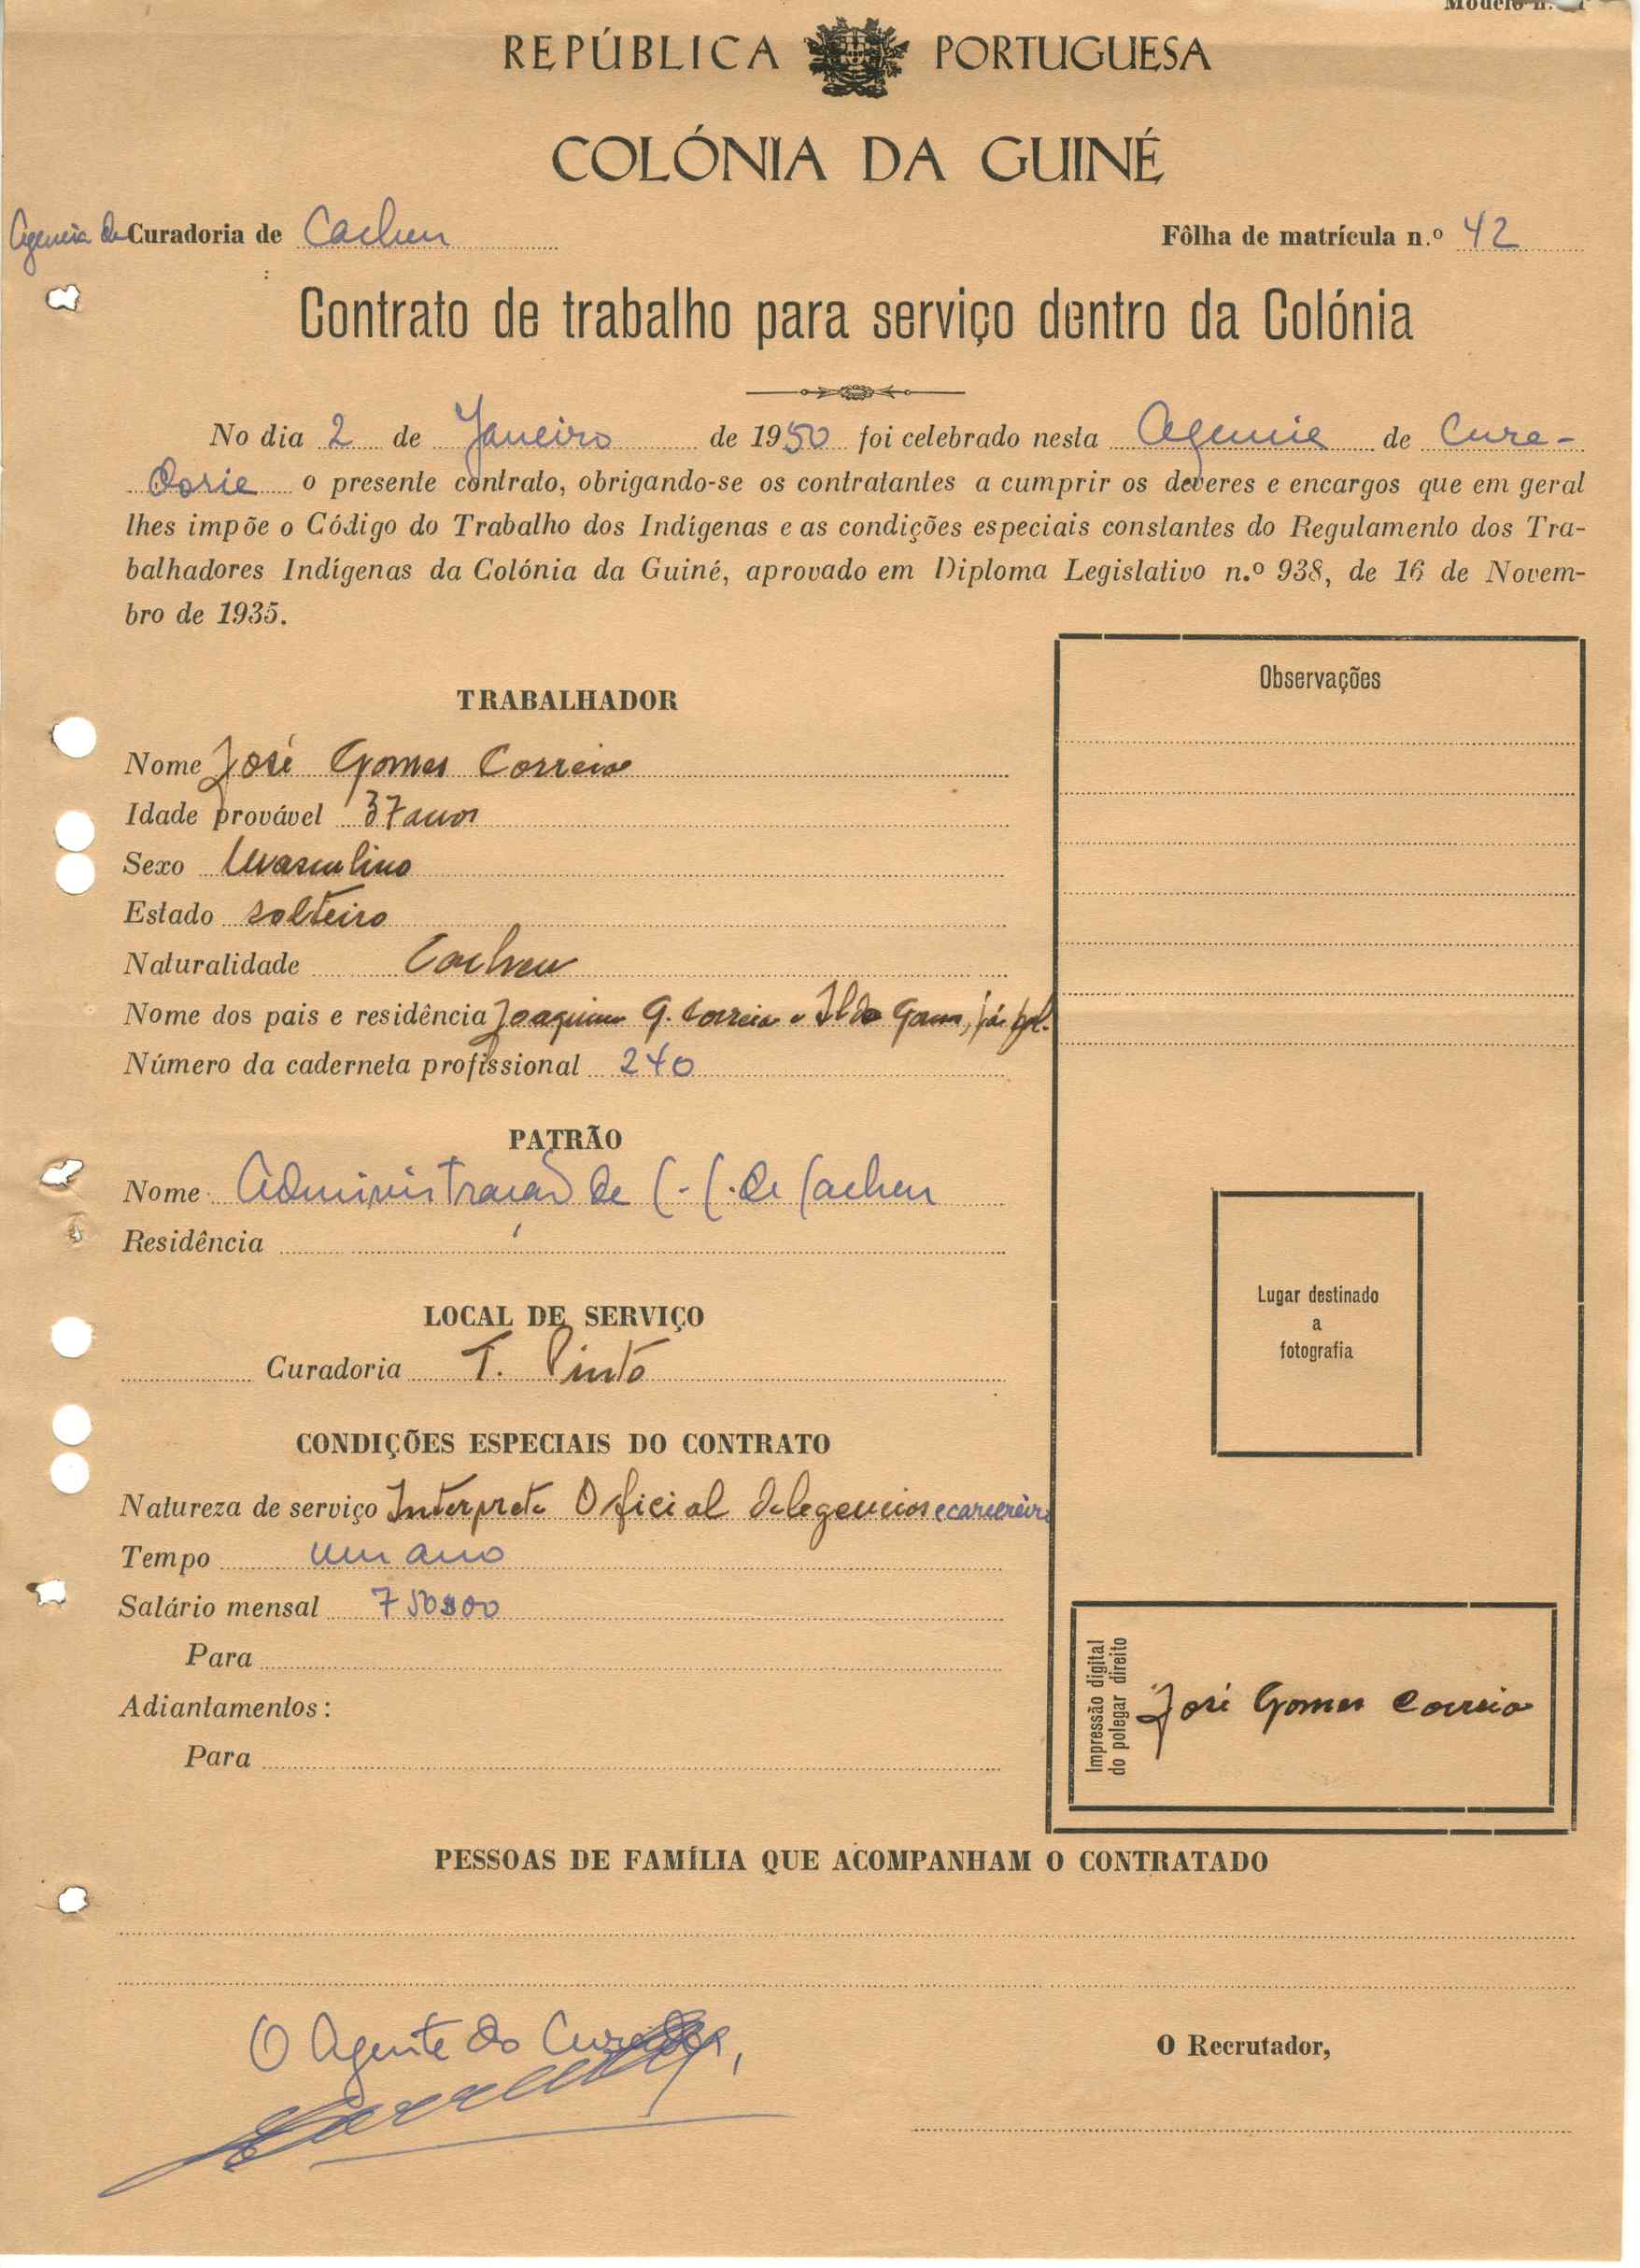 Modelo n.
REPÚBLICA PORTUGUESA
COLÓNIA DA GUINÉ
Agencia da Curadoria de Cacheu
Fôlha de matrícula n.º 42
Contrato de trabalho para serviço dentro da Colónia
No dia 2 de Janeiro de 1950 foi celebrado nesta Agencia de Cura-
doria o presente contrato, obrigando-se os contratantes a cumprir os deveres e encargos que em geral
lhes impõe o Código do Trabalho dos Indígenas e as condições especiais constantes do Regulamento dos Tra-
balhadores Indígenas da Colónia da Guiné, aprovado em Diploma Legislativo n.º 938, de 16 de Novem-
bro de 1935.
TRABALHADOR
Nome José Gomes Correia
Idade provável 37 anos
Sexo Masculino
Estado solteiro
Naturalidade Cacheu
Nome dos pais e residência Joaquim G. Correia e Ilda Gomes, já fal.
Número da caderneta profissional 240
PATRÃO
Nome Administração de C. C. de Cacheu
Residência
LOCAL DE SERVIÇO
Curadoria T. Pinto
CONDIÇÕES ESPECIAIS DO CONTRATO
Natureza de serviço Interprete Oficial delegencios e carcereiro
Tempo um ano
Salário mensal 750$00
Para
Adiantamentos:
Para
Observações
Lugar destinado
a
fotografia
Impressão digital
do polegar direito
José Gomes Correia
PESSOAS DE FAMÍLIA QUE ACOMPANHAM O CONTRATADO
O Agente do Curador,
O Recrutador,